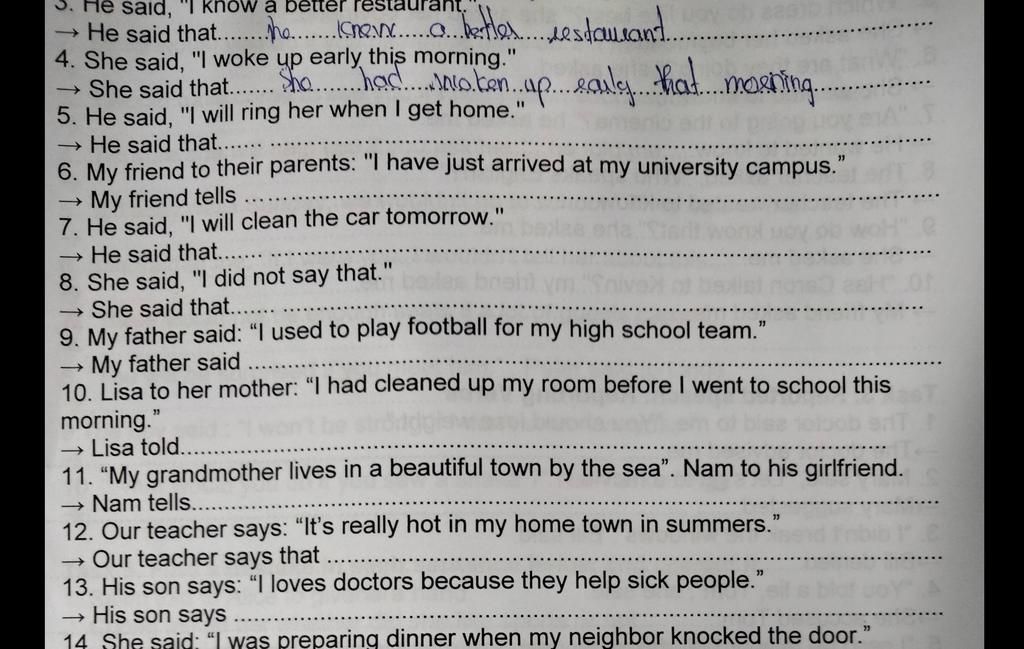 3. He said, "I know a better restaurant."
→ He said that...... he knew a better restaurant
4. She said, "I woke up early this morning."
→ She said that....... She had woken up early that morning
5. He said, "I will ring her when I get home."
→ He said that......
6. My friend to their parents: "I have just arrived at my university campus.”
→ My friend tells
7. He said, "I will clean the car tomorrow."
→ He said that......
8. She said, "I did not say that."
→ She said that......
9. My father said: “I used to play football for my high school team.”
→ My father said
10. Lisa to her mother: “I had cleaned up my room before I went to school this
morning.”
→ Lisa told......
11. “My grandmother lives in a beautiful town by the sea”. Nam to his girlfriend.
→ Nam tells......
12. Our teacher says: “It’s really hot in my home town in summers.”
→ Our teacher says that
13. His son says: “I loves doctors because they help sick people.”
→ His son says
14. She said: “I was preparing dinner when my neighbor knocked the door.”